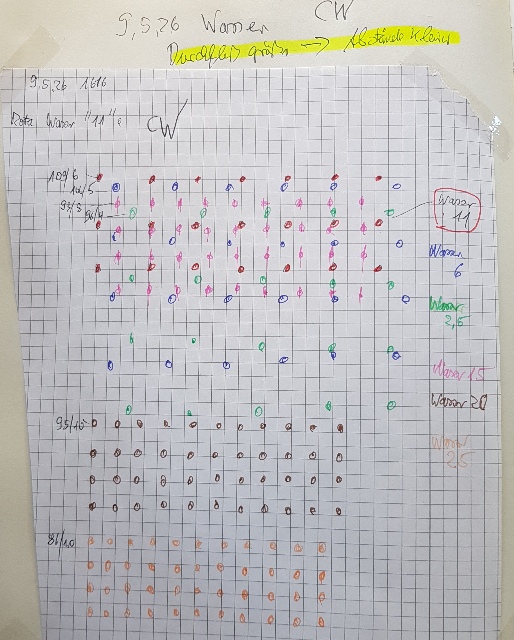 9,5,26 Wasser CW
Durchfluß größer → Abstände kleiner
9,5,26 1616
Rota Wasser "11":
CW
109/6
104/5
Wasser
11
Wasser
6
Wasser
2,5
Wasser 15
Wasser 20
95/10
Wasser
25
81/10